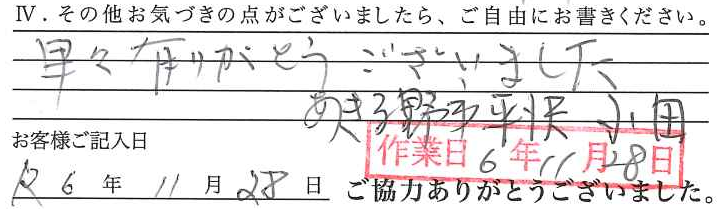 Ⅳ．その他お気づきの点がございましたら、ご自由にお書きください。
早々有りがとうございました
あきる野市平沢 小田
お客様ご記入日
作業日 6年11月28日
R6年11月28日 ご協力ありがとうございました。